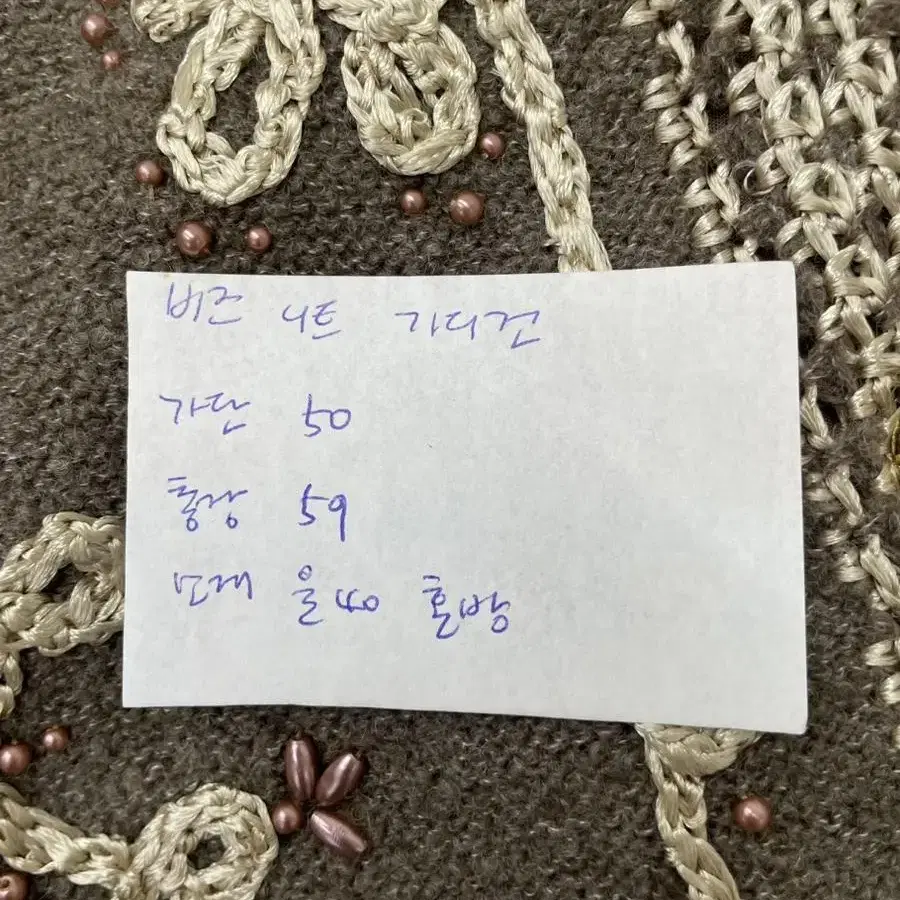 비즈 니트 가디건
가단 50
총장 59
소재 울40 혼방